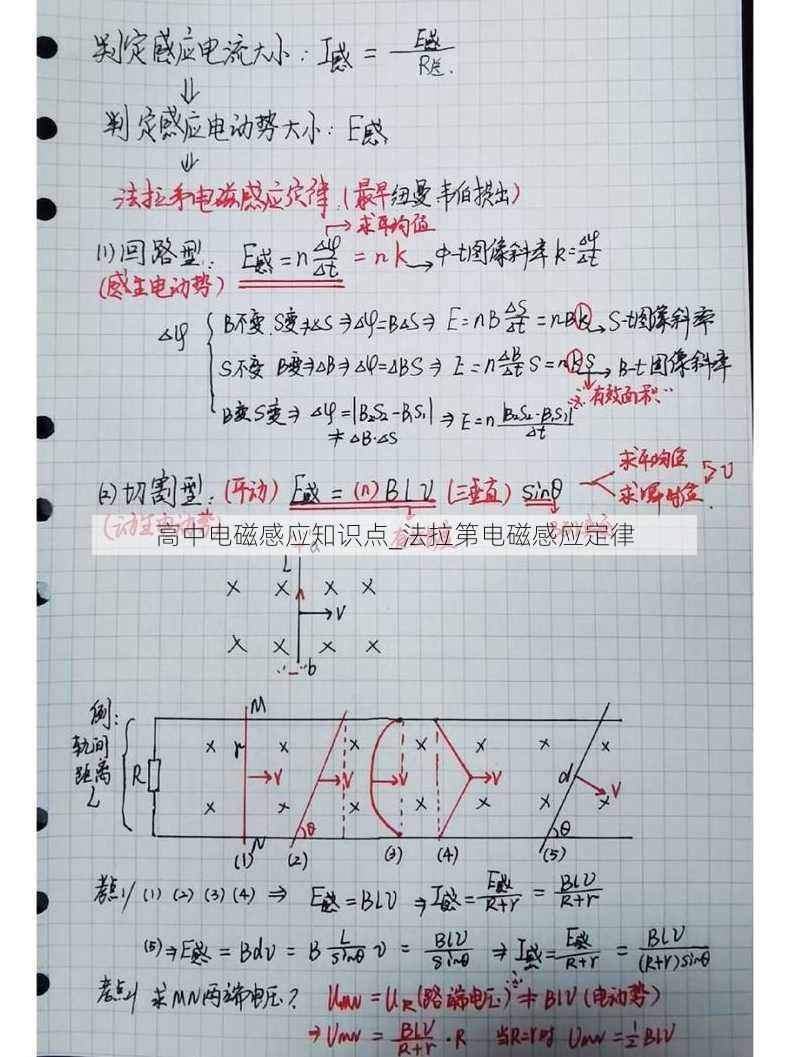 判定感应电流大小: I感 = E感/R总.
⇓
判定感应电动势大小: E感
⇓
法拉第电磁感应定律.(最早纽曼韦伯提出)
→求平均值
(1)回路型: E感=n Δφ/Δt = nk → φ-t图像斜率 k=Δφ/Δt
(感生电动势)
Δφ
B不变.S变⇒ΔS⇒Δφ=BΔS⇒ E=nB ΔS/Δt = nBk → S-t图像斜率
S不变 B变⇒ΔB⇒Δφ=ΔBS⇒ E=n ΔB/Δt S=nkS → B-t图像斜率
有效面积
B变S变⇒ Δφ=|B₂S₂-B₁S₁| ⇒ E=n |B₂S₂-B₁S₁|/Δt
≠ΔB·ΔS
求平均值
(2)切割型: (平动) E感 = (n) BLv (三垂直) sinθ
求瞬时值 v
(动生电动势)
高中电磁感应知识点_法拉第电磁感应定律
+ a
L
× × × ×
→v
× × × ×
- b
例:
轨间
距离
L
M
R r × × × × × × ×
→v →v →v →v d v
× × × × × × ×
θ θ
N
(1) (2) (3) (4) (5)
考点1/ (1) (2) (3) (4) ⇒ E感=BLv ⇒ I感= E感/R+r = BLv/R+r
(5)⇒E感 = Bdv = B L/sinθ v = BLv/sinθ ⇒ I感= E感/R+r = BLv/(R+r)sinθ
考点2/ 求MN两端电压? UMN = UR(路端电压) ≠ BLv (电动势)
⇒ UMN = BLv/R+r · R 当R=r时 UMN = ½ BLv